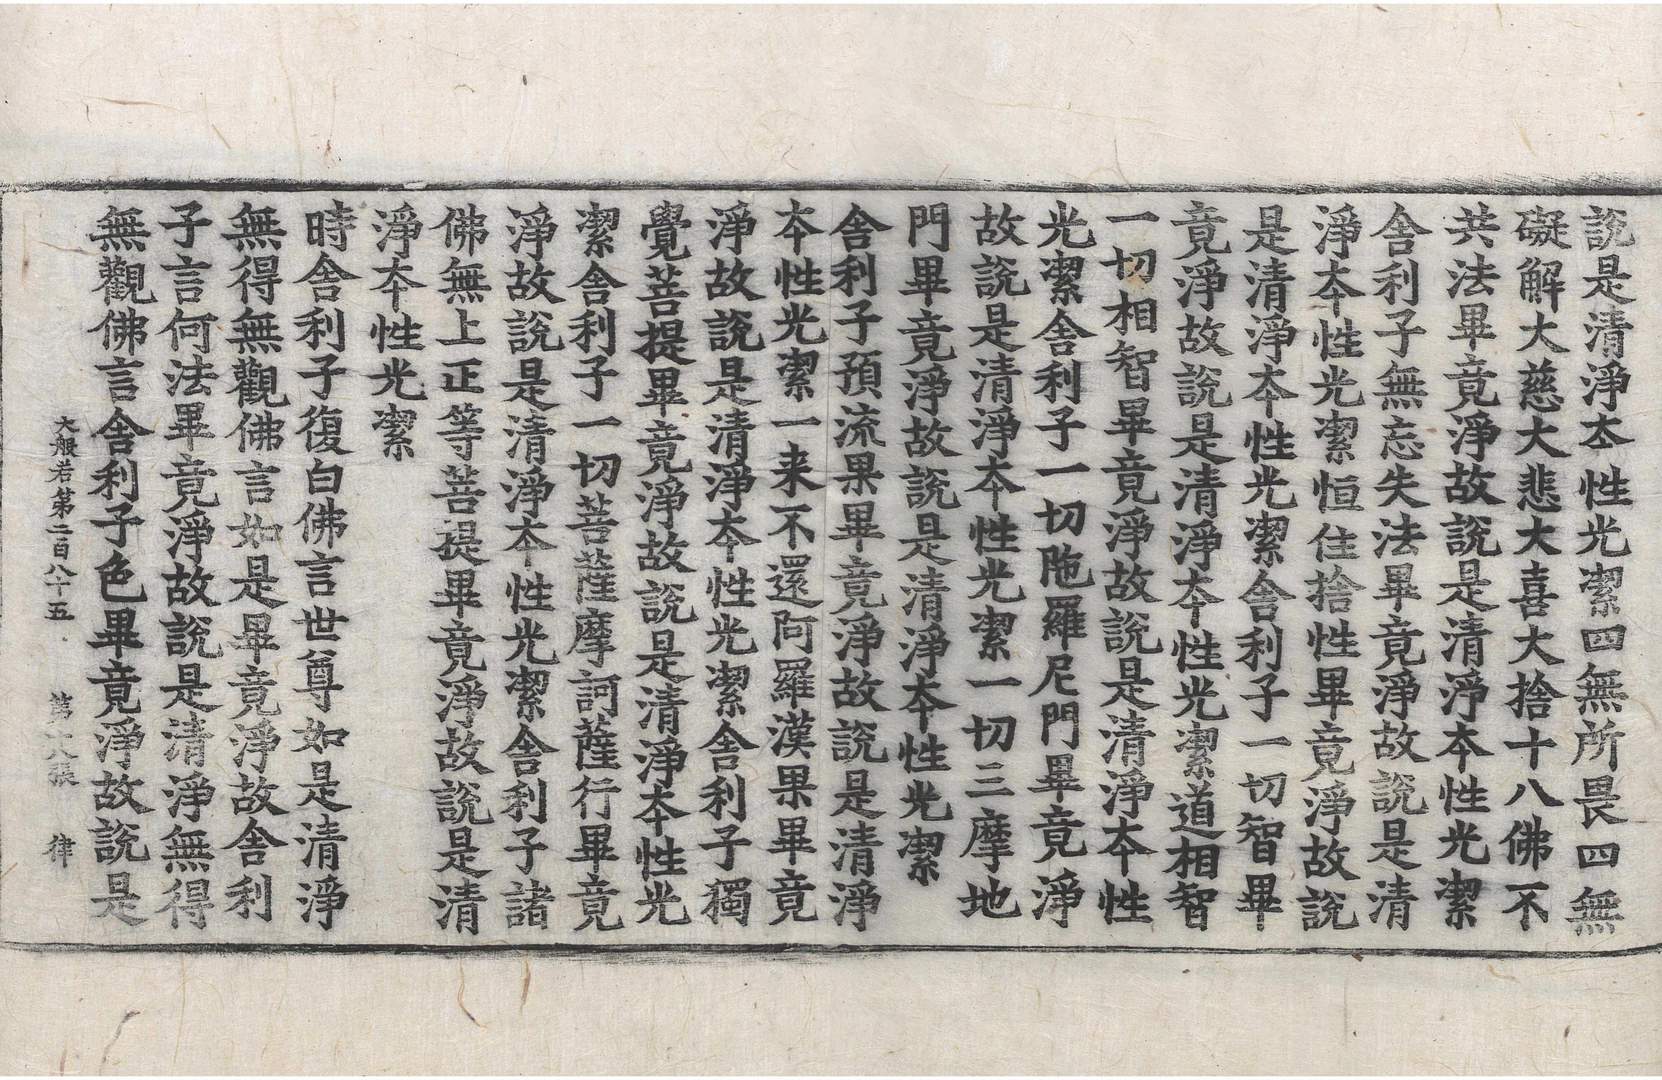 說是清淨夲性光潔四無所畏四無
礙解大慈大悲大喜大捨十八佛不
共法畢竟淨故說是清淨夲性光潔
舎利子無忘失法畢竟淨故說是清
淨夲性光潔恒住捨性畢竟淨故說
是清淨夲性光潔舎利子一切智畢
竟淨故說是清淨夲性光潔道相智
一切相智畢竟淨故說是清淨夲性
光潔舎利子一切陁羅尼門畢竟淨
故說是清淨夲性光潔一切三摩地
門畢竟淨故說是清淨夲性光潔
舎利子預流果畢竟淨故說是清淨
夲性光潔一来不還阿羅漢果畢竟
淨故說是清淨夲性光潔舎利子獨
覺菩提畢竟淨故說是清淨夲性光
潔舎利子一切菩薩摩訶薩行畢竟
淨故說是清淨夲性光潔舎利子諸
佛無上正等菩提畢竟淨故說是清
淨夲性光潔
時舎利子復白佛言世尊如是清淨
無得無觀佛言如是畢竟淨故舎利
子言何法畢竟淨故說是清淨無得
無觀佛言舎利子色畢竟淨故說是
大般若第二百八十五 第十八張 律